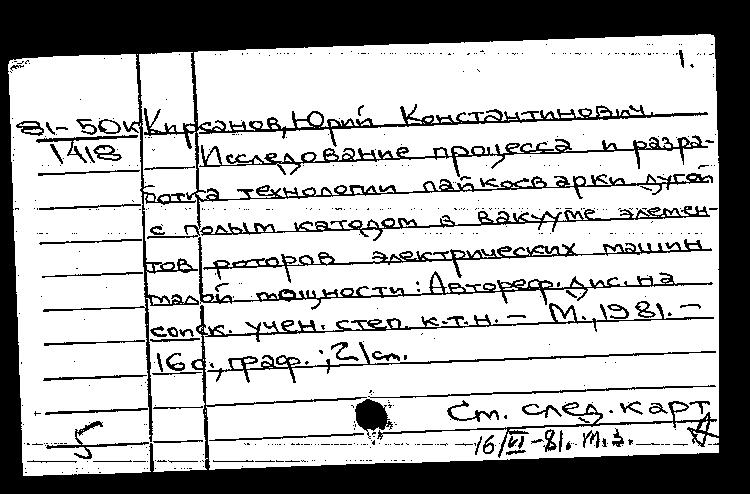 1.
81-50к Кирсанов, Юрий Константинович
1418 Исследование процесса и разра-
ботка технологии пайкосварки дугой
с полым катодом в вакууме элемен-
тов роторов электрических машин
малой мощности: Автореф. дис. на
соиск. учен. степ. к.т.н. - М., 1981. -
16 с., граф.; 21 см.
См. след. карт.
5 16/VI-81. т.з.